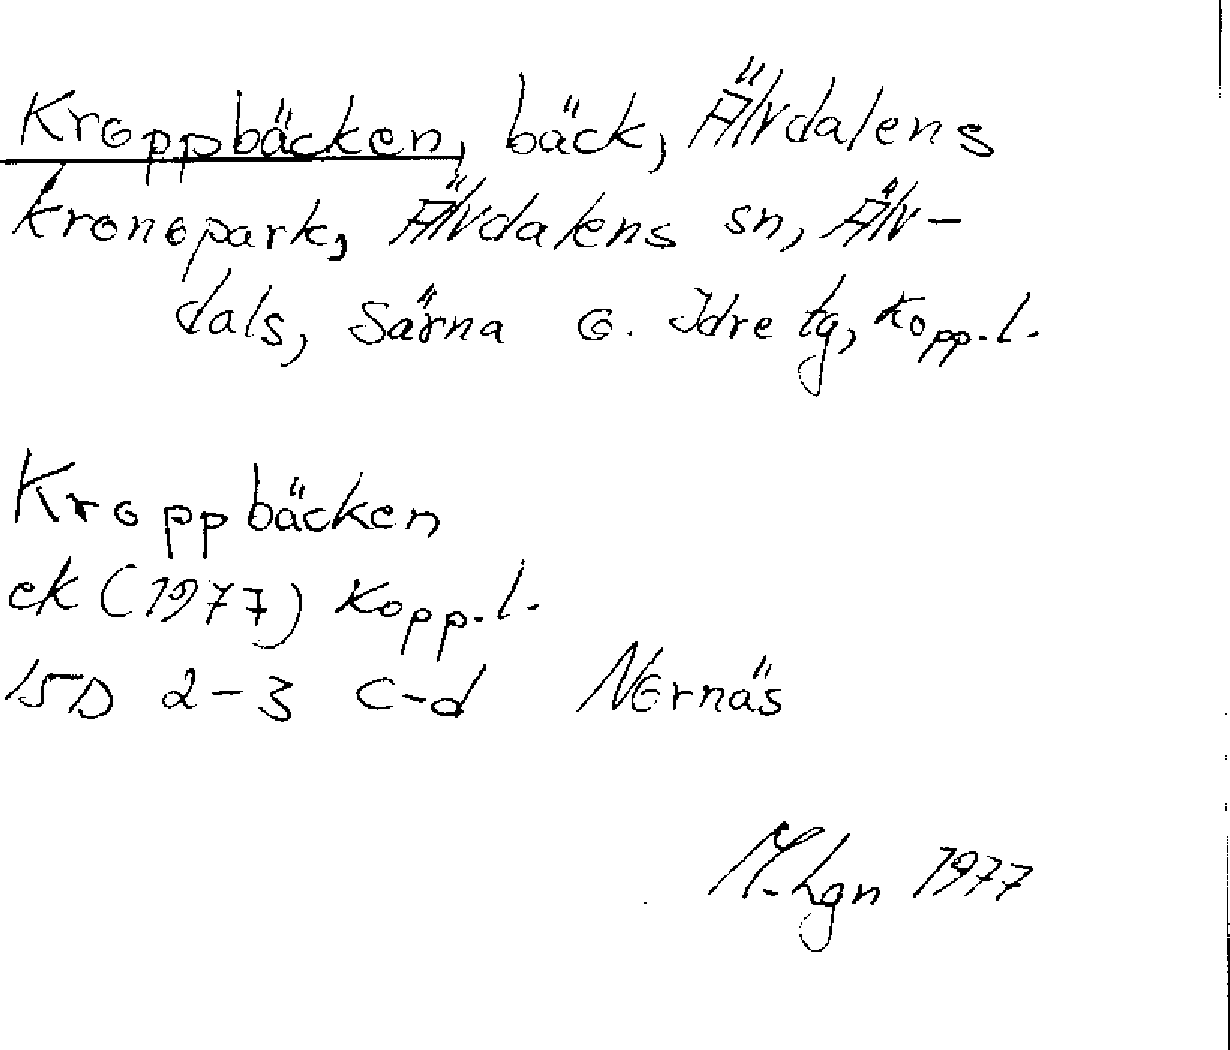 Kroppbäcken, bäck, Älvdalens
kronopark, Älvdalens sn, Älv-
dals, Särna o. Idre tg, Kopp. l.
Kroppbäcken
ek (1977) Kopp. l.
15D 2-3 c-d Nornäs
M-hgn 1977